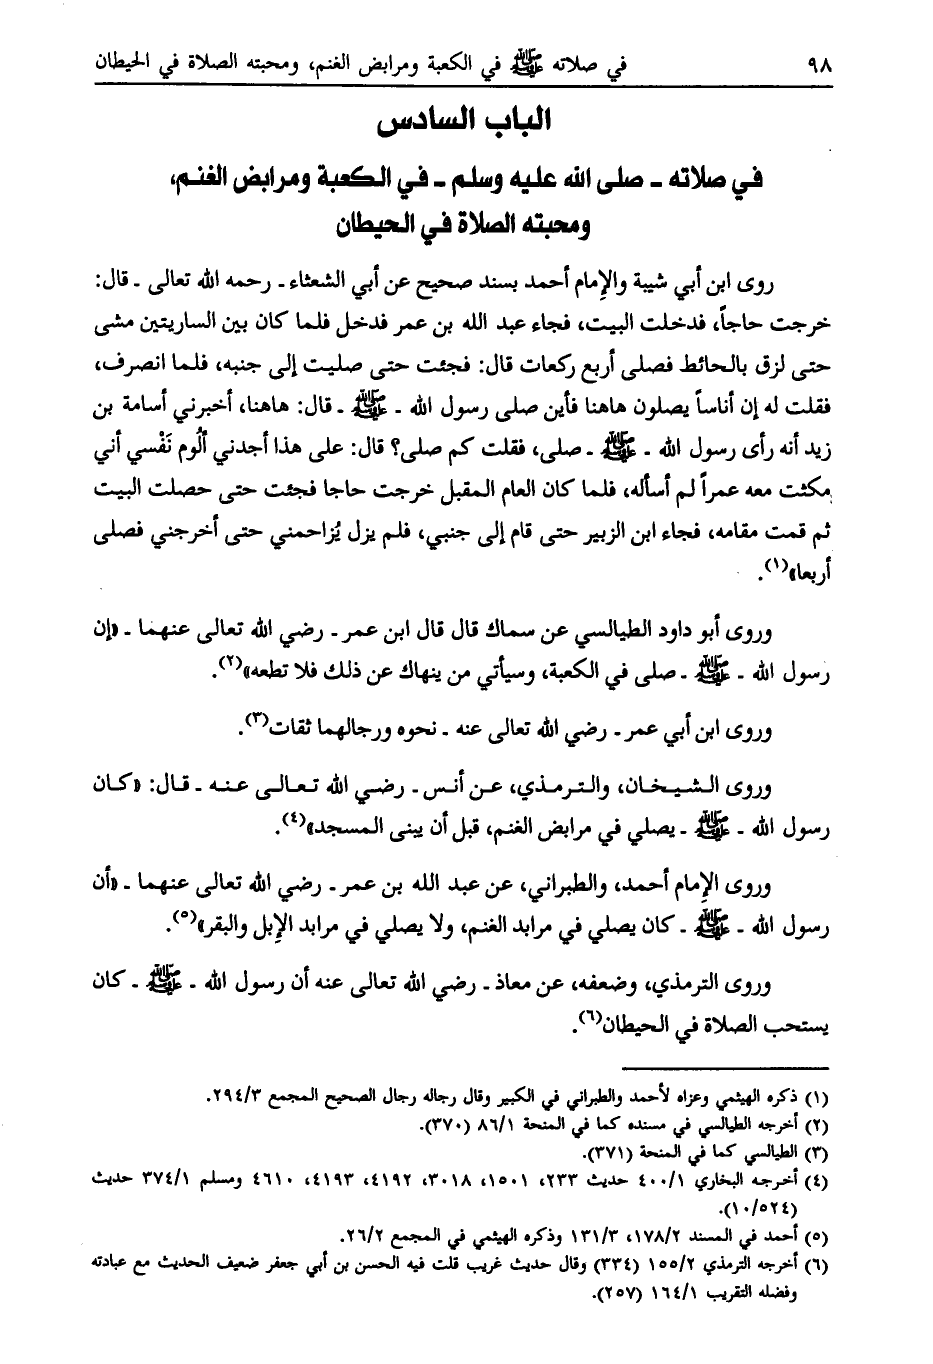 ٩٨ في صلاته ﷺ في الكعبة ومرابض الغنم، ومحبته الصلاة في الحيطان
الباب السادس
في صلاته ـ صلى الله عليه وسلم ـ في الكعبة ومرابض الغنم،
ومحبته الصلاة في الحيطان
روى ابن أبي شيبة والإمام أحمد بسند صحيح عن أبي الشعثاء ـ رحمه الله تعالى ـ قال:
خرجت حاجاً، فدخلت البيت، فجاء عبد الله بن عمر فدخل فلما كان بين الساريتين مشى
حتى لزق بالحائط فصلى أربع ركعات قال: فجئت حتى صليت إلى جنبه، فلما انصرف،
فقلت له إن أناساً يصلون هاهنا فأين صلى رسول الله ـ ﷺ ـ قال: هاهنا، أخبرني أسامة بن
زيد أنه رأى رسول الله ـ ﷺ ـ صلى، فقلت كم صلى؟ قال: على هذا أجدني ألُوم نَفْسي أني
مكثت معه عمراً لم أسأله، فلما كان العام المقبل خرجت حاجا فجئت حتى حصلت البيت
ثم قمت مقامه، فجاء ابن الزبير حتى قام إلى جنبي، فلم يزل يُزاحمني حتى أخرجني فصلى
أربعا»(١).
وروى أبو داود الطيالسي عن سماك قال قال ابن عمر ـ رضي الله تعالى عنهما ـ «إن
رسول الله ـ ﷺ ـ صلى في الكعبة، وسيأتي من ينهاك عن ذلك فلا تطعه»(٢).
وروى ابن أبي عمر ـ رضي الله تعالى عنه ـ نحوه ورجالهما ثقات(٣).
وروى الشيخان، والترمذي، عن أنس ـ رضي الله تعالى عنه ـ قال: «كان
رسول الله ـ ﷺ ـ يصلي في مرابض الغنم، قبل أن يبنى المسجد»(٤).
وروى الإمام أحمد، والطبراني، عن عبد الله بن عمر ـ رضي الله تعالى عنهما ـ «أن
رسول الله ـ ﷺ ـ كان يصلي في مرابد الغنم، ولا يصلي في مرابد الإبل والبقر»(٥).
وروى الترمذي، وضعفه، عن معاذ ـ رضي الله تعالى عنه أن رسول الله ـ ﷺ ـ كان
يستحب الصلاة في الحيطان(٦).
(١) ذكره الهيثمي وعزاه لأحمد والطبراني في الكبير وقال رجاله رجال الصحيح المجمع ٢٩٤/٣.
(٢) أخرجه الطيالسي في مسنده كما في المنحة ٨٦/١ (٣٧٠).
(٣) الطيالسي كما في المنحة (٣٧١).
(٤) أخرجه البخاري ٤٠٠/١ حديث ٢٣٣، ١٥٠١، ٣٠١٨، ٤١٩٢، ٤١٩٣، ٤٦١٠ ومسلم ٣٧٤/١ حديث
(١٠/٥٢٤).
(٥) أحمد في المسند ١٧٨/٢، ١٣١/٣ وذكره الهيثمي في المجمع ٢٦/٢.
(٦) أخرجه الترمذي ١٥٥/٢ (٣٣٤) وقال حديث غريب قلت فيه الحسن بن أبي جعفر ضعيف الحديث مع عبادته
وفضله التقريب ١٦٤/١ (٢٥٧).